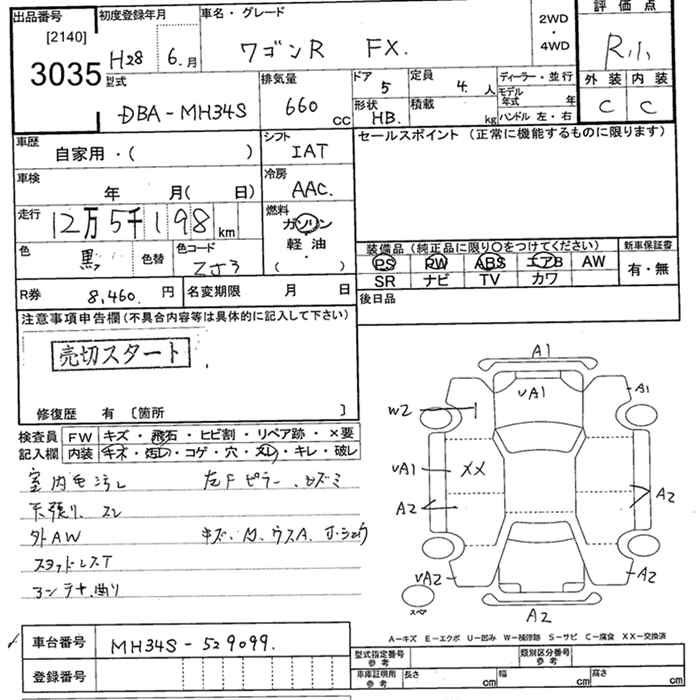 出品番号 初度登録年月 車名・グレード 2WD・4WD 評価点
[2140]
3035 H28年 6.月 ワゴンR FX. R小
型式 排気量 ドア 定員 ディーラー・並行 外装 内装
DBA-MH34S 660 CC 5 4.人 モデル年式 年 C C
形状 積載 ハンドル 左・右
HB. kg
車歴 シフト セールスポイント(正常に機能するものに限ります)
自家用・( ) IAT
車検 冷房
年 月( 日) AAC.
走行 燃料
12万5千198 km ガソリン
軽油
( )
色 色替 色コード 装備品(純正品に限り○をつけてください) 新車保証書
黒 ZJ3 PS PW ABS エアB AW 有・無
SR ナビ TV カワ
R券 8,460. 円 名変期限 月 日 後日品
注意事項申告欄(不具合内容等は具体的に記入して下さい)
売切スタート
修復歴 有 〔箇所 〕
検査員 FW キズ・飛石・ヒビ割・リペア跡・×要
記入欄 内装 キズ・汚レ・コゲ・穴・スレ・キレ・破レ
室内モ汚レ 左Fピラー.
天張り. スレ
外AW キズ・凹.ウスA.
スタッドレスT
コンテナ.曲り
A1
A1
VA1
W2
VA1 XX
A2 A2
VA2 A2
A2
スペア
A-キズ E-エクボ U-凹み W-補修跡 S-サビ C-腐食 XX-交換済
車台番号 MH34S-529099.
登録番号
型式指定番号 参考 類別区分番号 参考
車庫証明用 参考 長さ cm 幅 cm 高さ cm